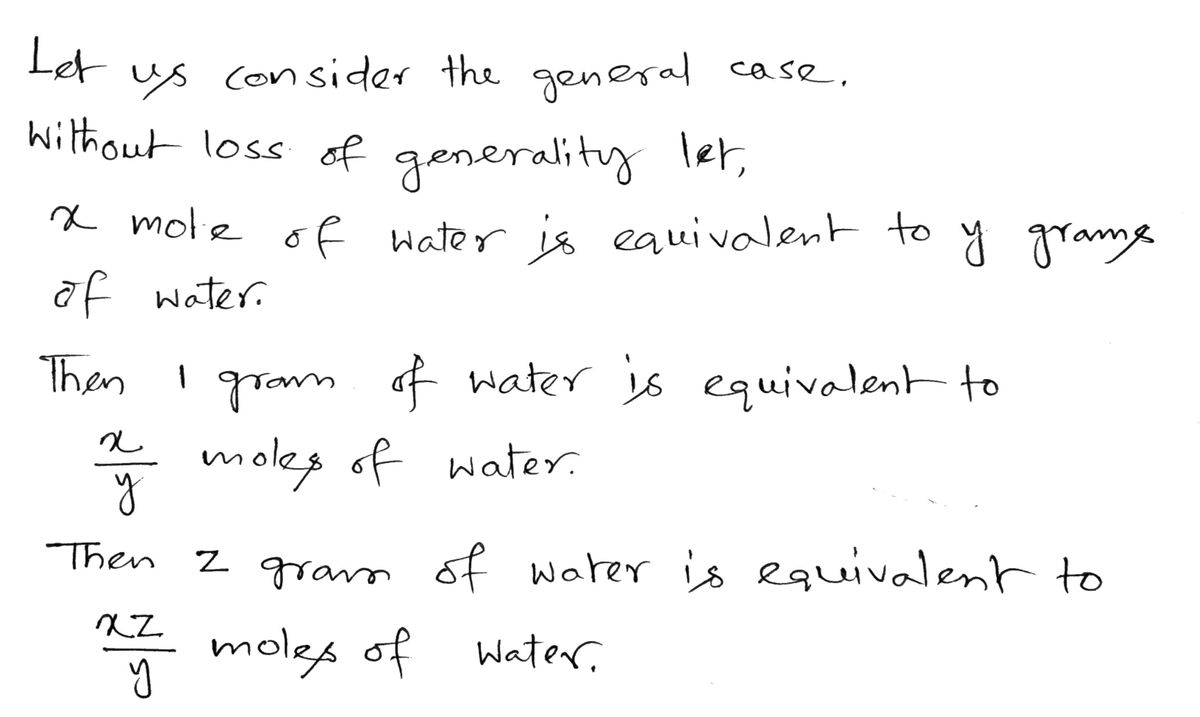 Let us consider the general case.
Without loss of generality let,
x mole of water is equivalent to y grams
of water.
Then 1 gram of water is equivalent to
x/y moles of water.
Then z gram of water is equivalent to
xz/y moles of water.